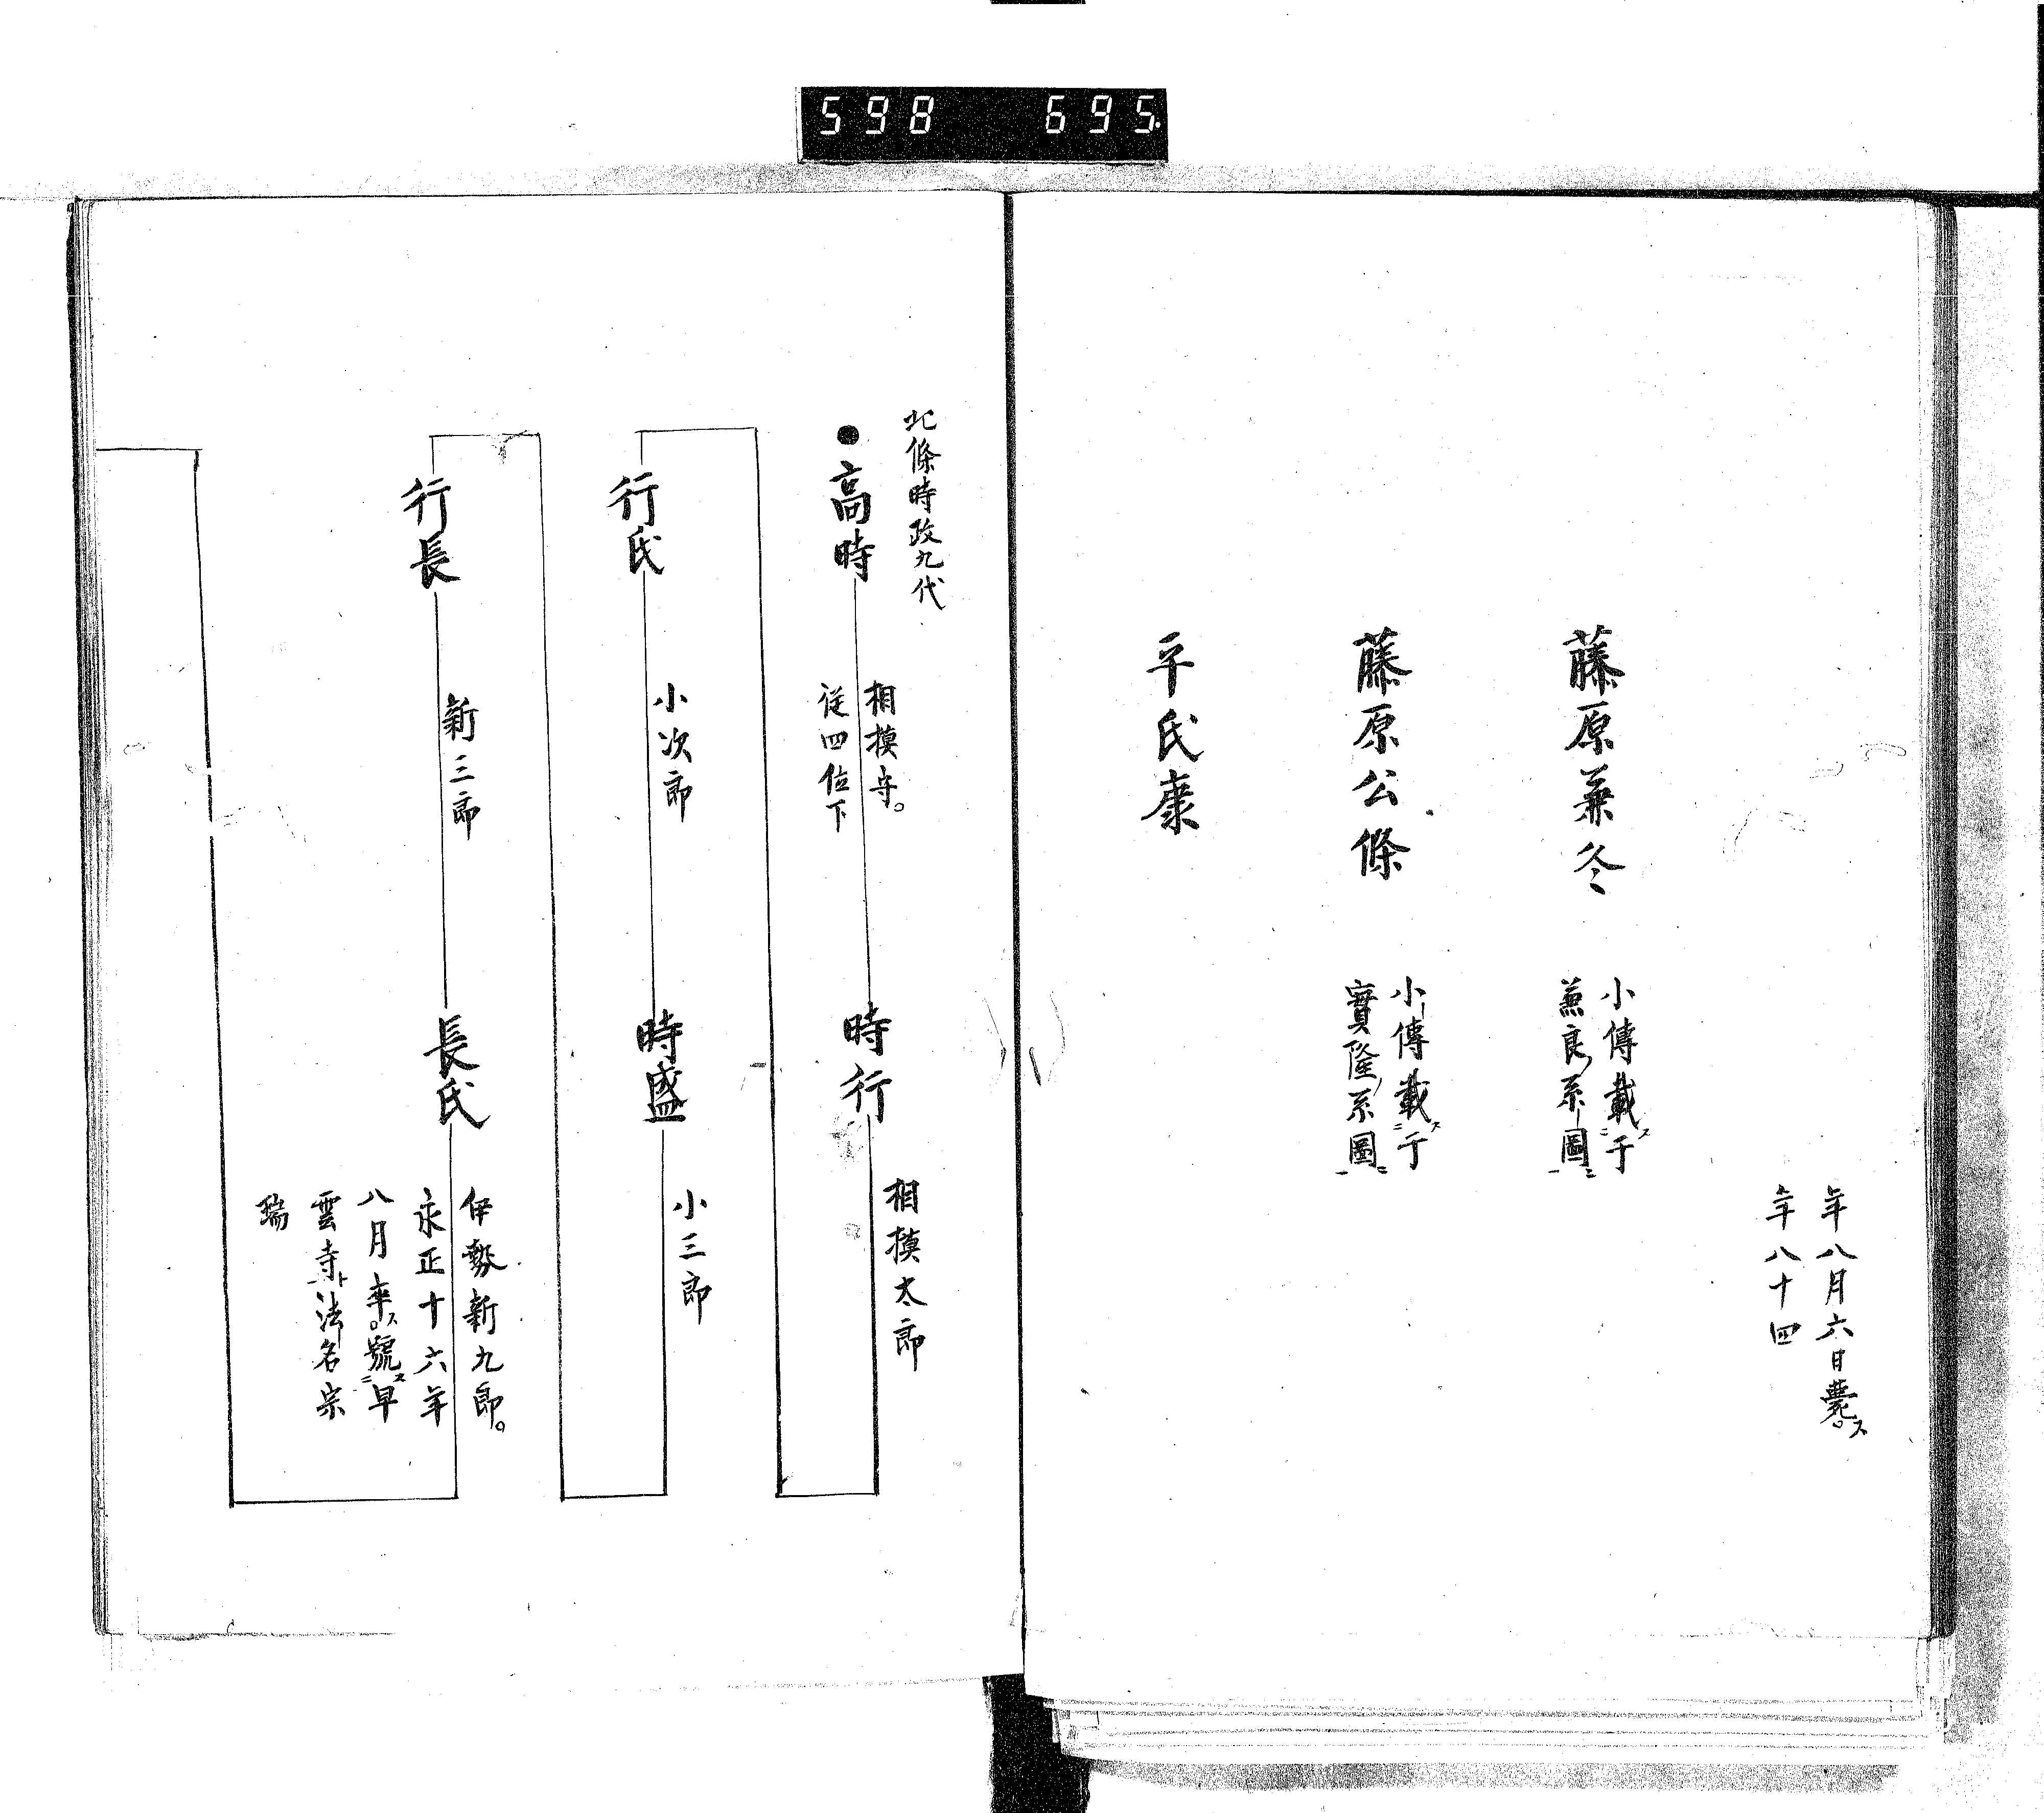 598 695.
年八月六日薨ス。
年八十四
藤原兼冬
小傳載ス二于
兼良ノ系圖ニ一
藤原公條
小傳載ス二于
實隆ノ系圖ニ一
平氏康
北條時政九代
●高時
相摸守。
從四位下
時行
相摸太郎
行氏
小次郎
時盛
小三郎
行長
新三郎
長氏
伊勢新九郎。
永正十六年
八月卒ス。號ス二早
雲寺ト一法名宗
瑞